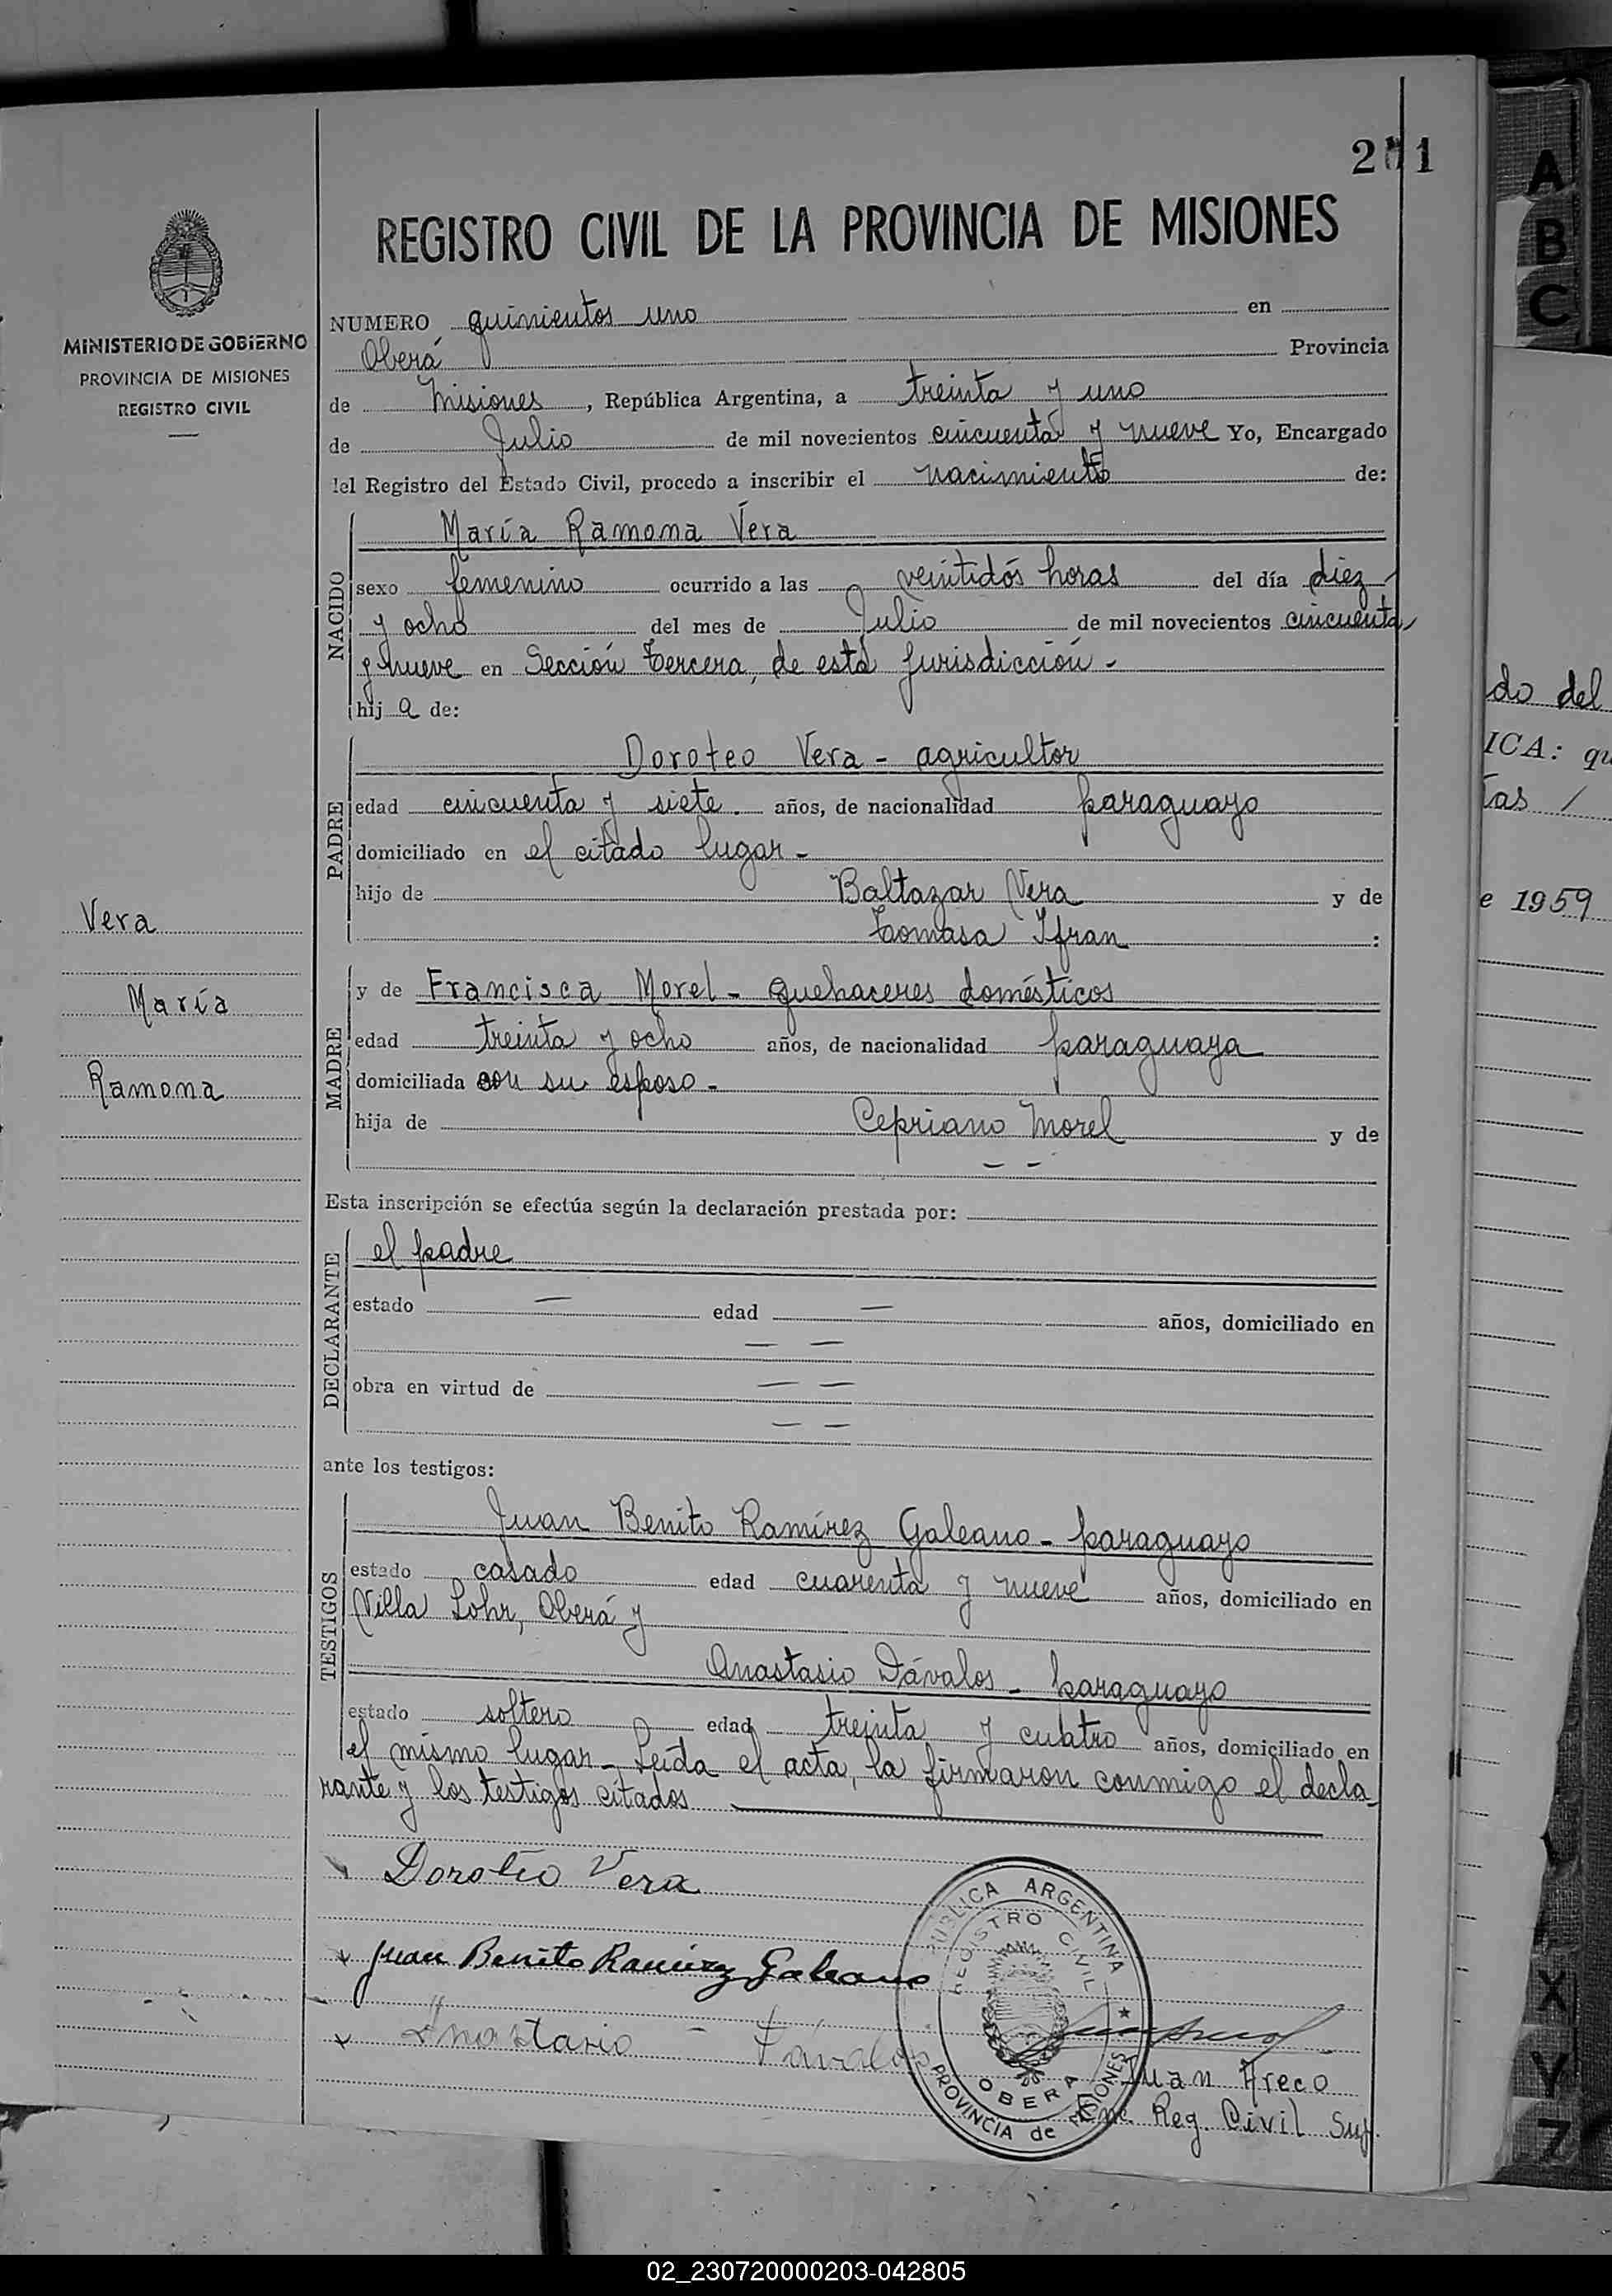 2 1
REGISTRO CIVIL DE LA PROVINCIA DE MISIONES
MINISTERIO DE GOBIERNO
PROVINCIA DE MISIONES
REGISTRO CIVIL
NUMERO quinientos uno en
Oberá Provincia
de Misiones, República Argentina, a treinta y uno
de Julio de mil novecientos cincuenta y nueve Yo, Encargado
del Registro del Estado Civil, procedo a inscribir el nacimiento de:
NACIDO
María Ramona Vera
sexo femenino ocurrido a las veintidós horas del día diez
y ocho del mes de Julio de mil novecientos cincuenta
y nueve en Sección Tercera, de esta jurisdicción -
hija de:
PADRE
Doroteo Vera - agricultor
edad cincuenta y siete. años, de nacionalidad paraguayo
domiciliado en el citado lugar -
hijo de Baltazar Vera y de
Tomasa Ifran :
MADRE
y de Francisca Morel - quehaceres domésticos
edad treinta y ocho años, de nacionalidad paraguaya
domiciliada con su esposo -
hija de Cepriano Morel y de
- -
Esta inscripción se efectúa según la declaración prestada por:
DECLARANTE
el padre
estado — edad — años, domiciliado en
— —
obra en virtud de — —
— —
ante los testigos:
TESTIGOS
Juan Benito Ramírez Galeano - paraguayo
estado casado edad cuarenta y nueve años, domiciliado en
Villa Lohr, Oberá y
Anastasio Dávalos - paraguayo
estado soltero edad treinta y cuatro años, domiciliado en
el mismo lugar - Leída el acta, la firmaron conmigo el decla-
rante y los testigos citados
Vera
María
Ramona
Doroteo Vera
Juan Benito Ramirez Galeano
Anastasio - Dávalos
REPUBLICA ARGENTINA
REGISTRO CIVIL
OBERA
PROVINCIA de MISIONES
Juan Areco
Enc. Reg. Civil Sup.
A
B
C
do del
ICA: qu
tas /
e 1959
X
Y
Z
02_230720000203-042805